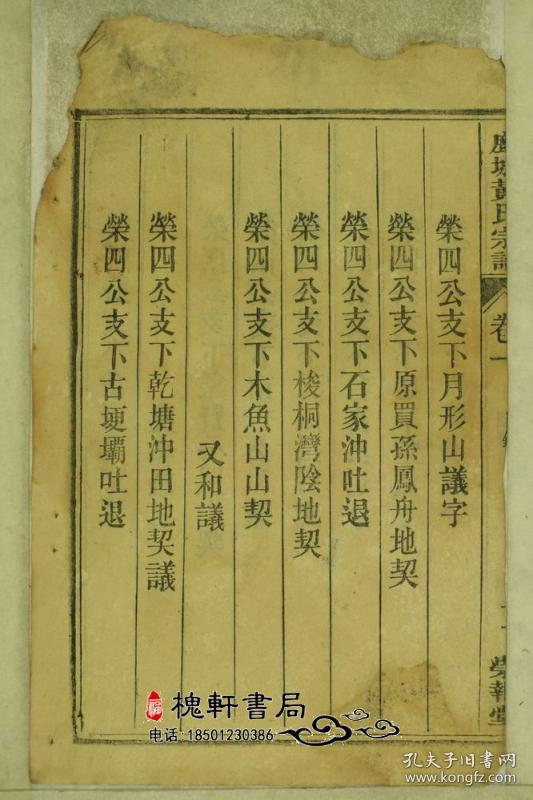 黃氏宗譜
卷一
榮四公支下月形山議字
榮四公支下原買孫鳳舟地契
榮四公支下石家沖吐退
榮四公支下梭桐灣陰地契
榮四公支下木魚山山契
又和議
榮四公支下乾塘沖田地契議
榮四公支下古埂壩吐退
槐軒書局
电话:18501230386
孔夫子旧书网
www.kongfz.com